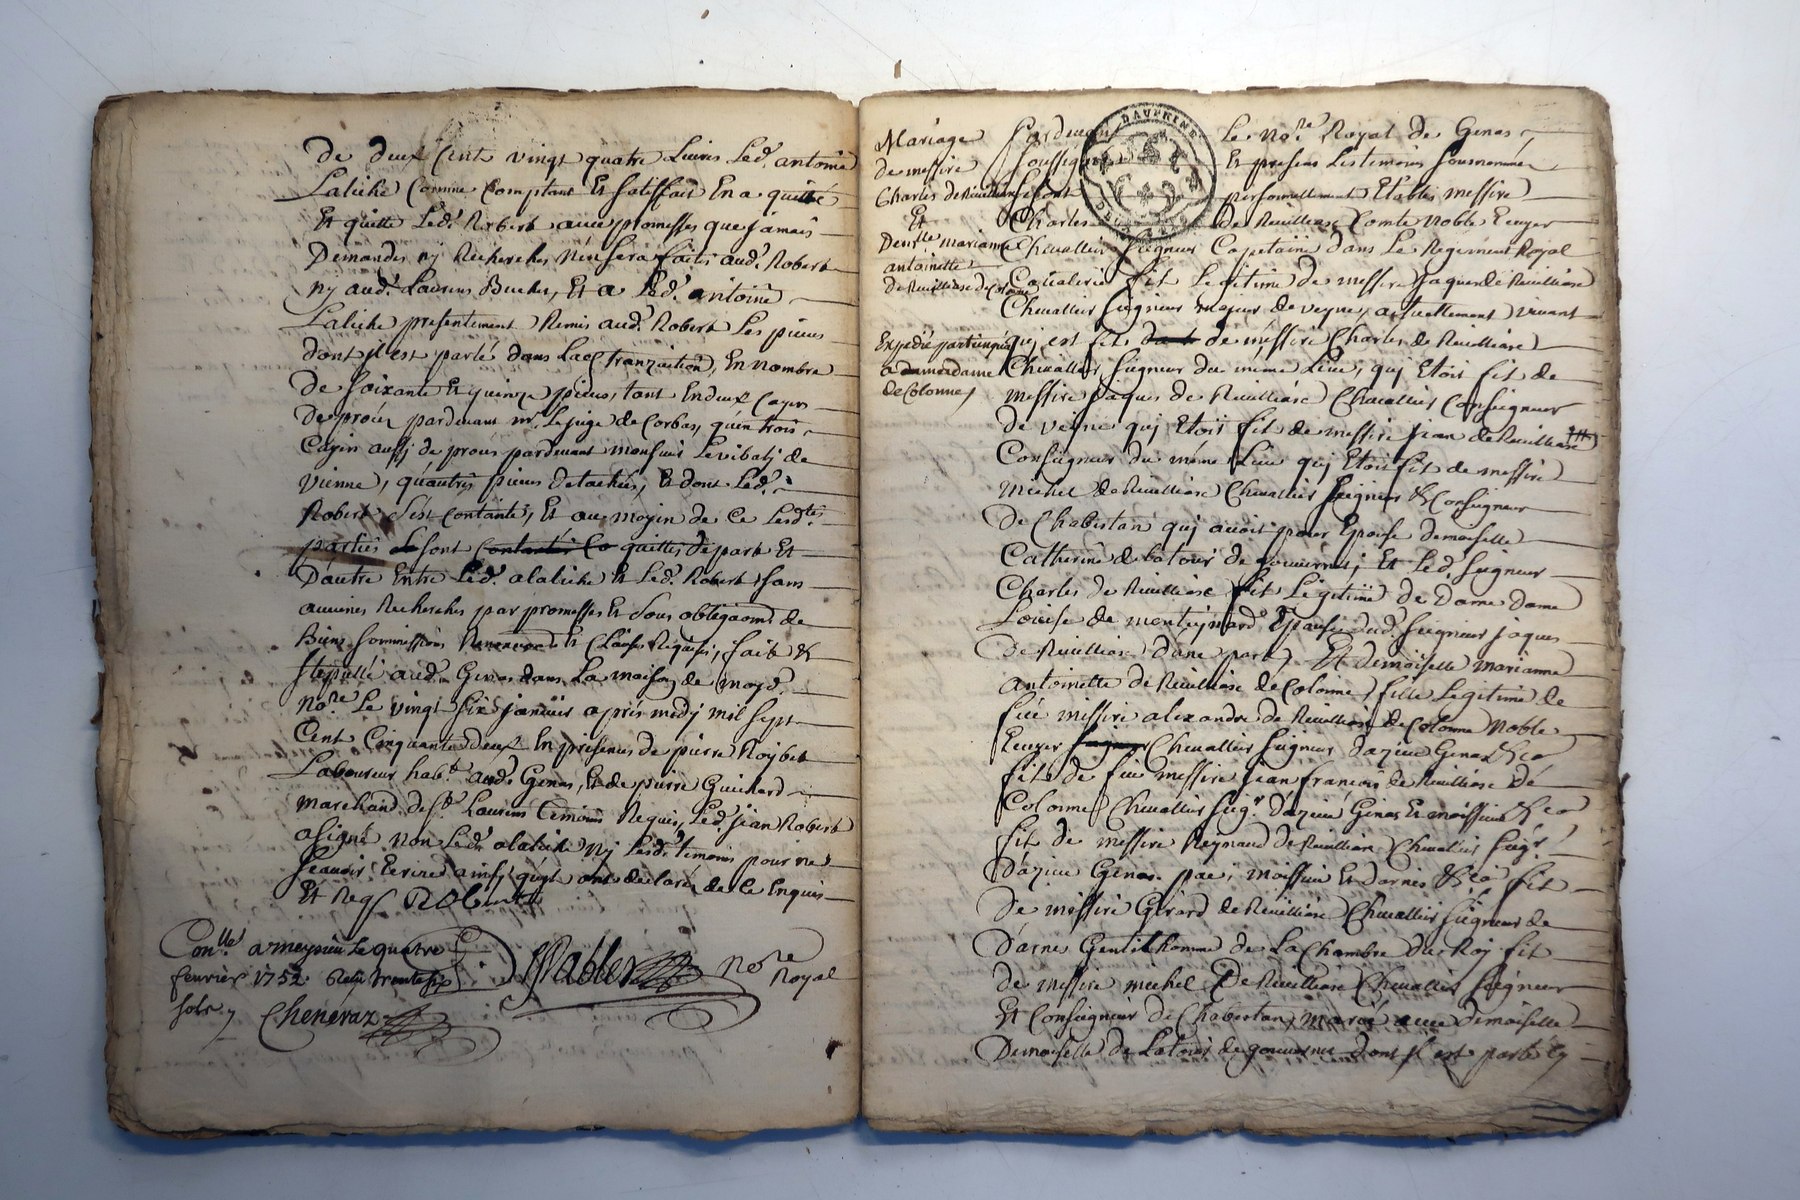 De deux Cent vingt quatre Livres Led. antoine
Laliche Comme Comptant Et satisffait En a quitté
Et quitte Led. Robert avec promesses que jamais
Demandes ny Recherches N'en sera faites aud. Robert
ny aud. Laurens Buchet, Et a Led. antoine
Laliche presentement Remis aud. Robert Les pieces
dont jl est parlé dans La tranzaction, En nombre
De soixante Et quinze pieces, tant En deux Cayers
De procés pardevant mr. Le juge de Corbas, qu'en trois
Cayers aussj de procés pardevant monsieur Le vibalj de
vienne, qu'autres pieces detachées, & dont Led.
Robert s'est Contanté, Et au moyen de Ce Lesdtes
parties se sont quittes de part Et
D'autre Entre Led. alaliche & Led. Robert sans
aucunes Recherches par promesses Et sous obligaons de
Biens sommissions Renonvoe & Clauses Requises, fait &
stippullé aud. Genas dans La maison de moyd.
Nore Le vingt six janvier après midj mil sept
Cent Cinquante deux En presences de pierre Roybet
Laboureur habt. aud. Genas, Et de pierre Guichard
marchand de St Laurens temoins Requis, Led. jean Robert
a signé non Led. alaliche Ny Lesd. temoins pour ne
sçavoir Ecrire ainsy qu'jls ont declaré de Ce Enquis
Et Reqs Robert
Conlle a meyzieu Le quatre
fevrier 1752 Reçu trente six
sols
Chenevaz
Pablez Nore
Royal
Mariage
de messire
Charles de Reuilliase
Et
Demlle marianne
antoinette
de Reuilliase de Colonne
Expedié
a de madame
de Colonne
DAUPHINÉ
Pardevant Le Nore Royal de Genas
soussigné Et presens Les temoins sousnommés
se sont personnellement Etablis messire
Charles De Reuilliase Comte Noble Ecuyer
Chevallier seigneur Capitaine dans Le Regiment Royal
Cavalerie fils Legitime de messire jaques de Reuilliase
Chevallier seigneur majeur de veyne, actuellement vivant
quj est fils de messire Charles de Reuilliase
Chevallier seigneur du même Lieu, quj Etoit fils de
messire jaques de Reuilliase Chevallier Conseigneur
de veine quj Etoit fils de messire jean de Reuilliase
Conseigneur du même Lieu quj Etoit fils de messire
michel de Reuilliase Chevallier seigneur & Conseigneur
De Chabestan quj avoit pour Epouse demoiselle
Catherine de Latour de gouvernet; Et Led. seigneur
Charles de Reuilliase fils Legitime de Dame Dame
Louise de monteynard Epouse dud. seigneur jaques
de Reuilliase d'une part Et demoiselle marianne
antoinette de Reuilliase de Colonne fille Legitime de
feu messire alexandre de Reuilliase de Colonne Noble
Ecuyer Chevallier seigneur d'azieu Genas & ca
fils de feu messire jean françois de Reuilliase de
Colonne Chevallier seigr. d'azieu Genas Et moissieu & ca
fils de messire Reynaud de Reuilliase Chevalier seigr.
d'azieu Genas moissieu Et d'arnes & ca fils
De messire Gerard de Reuilliase Chevallier seigneur de
d'arnes Gentilhomme de La Chambre du Roy fils
de messire michel De Reuilliase Chevallier seigneur
Et Conseigneur de Chabestan, marié avec demoiselle
Demoiselle de Latour de gouvernet dont jl est parlé cy